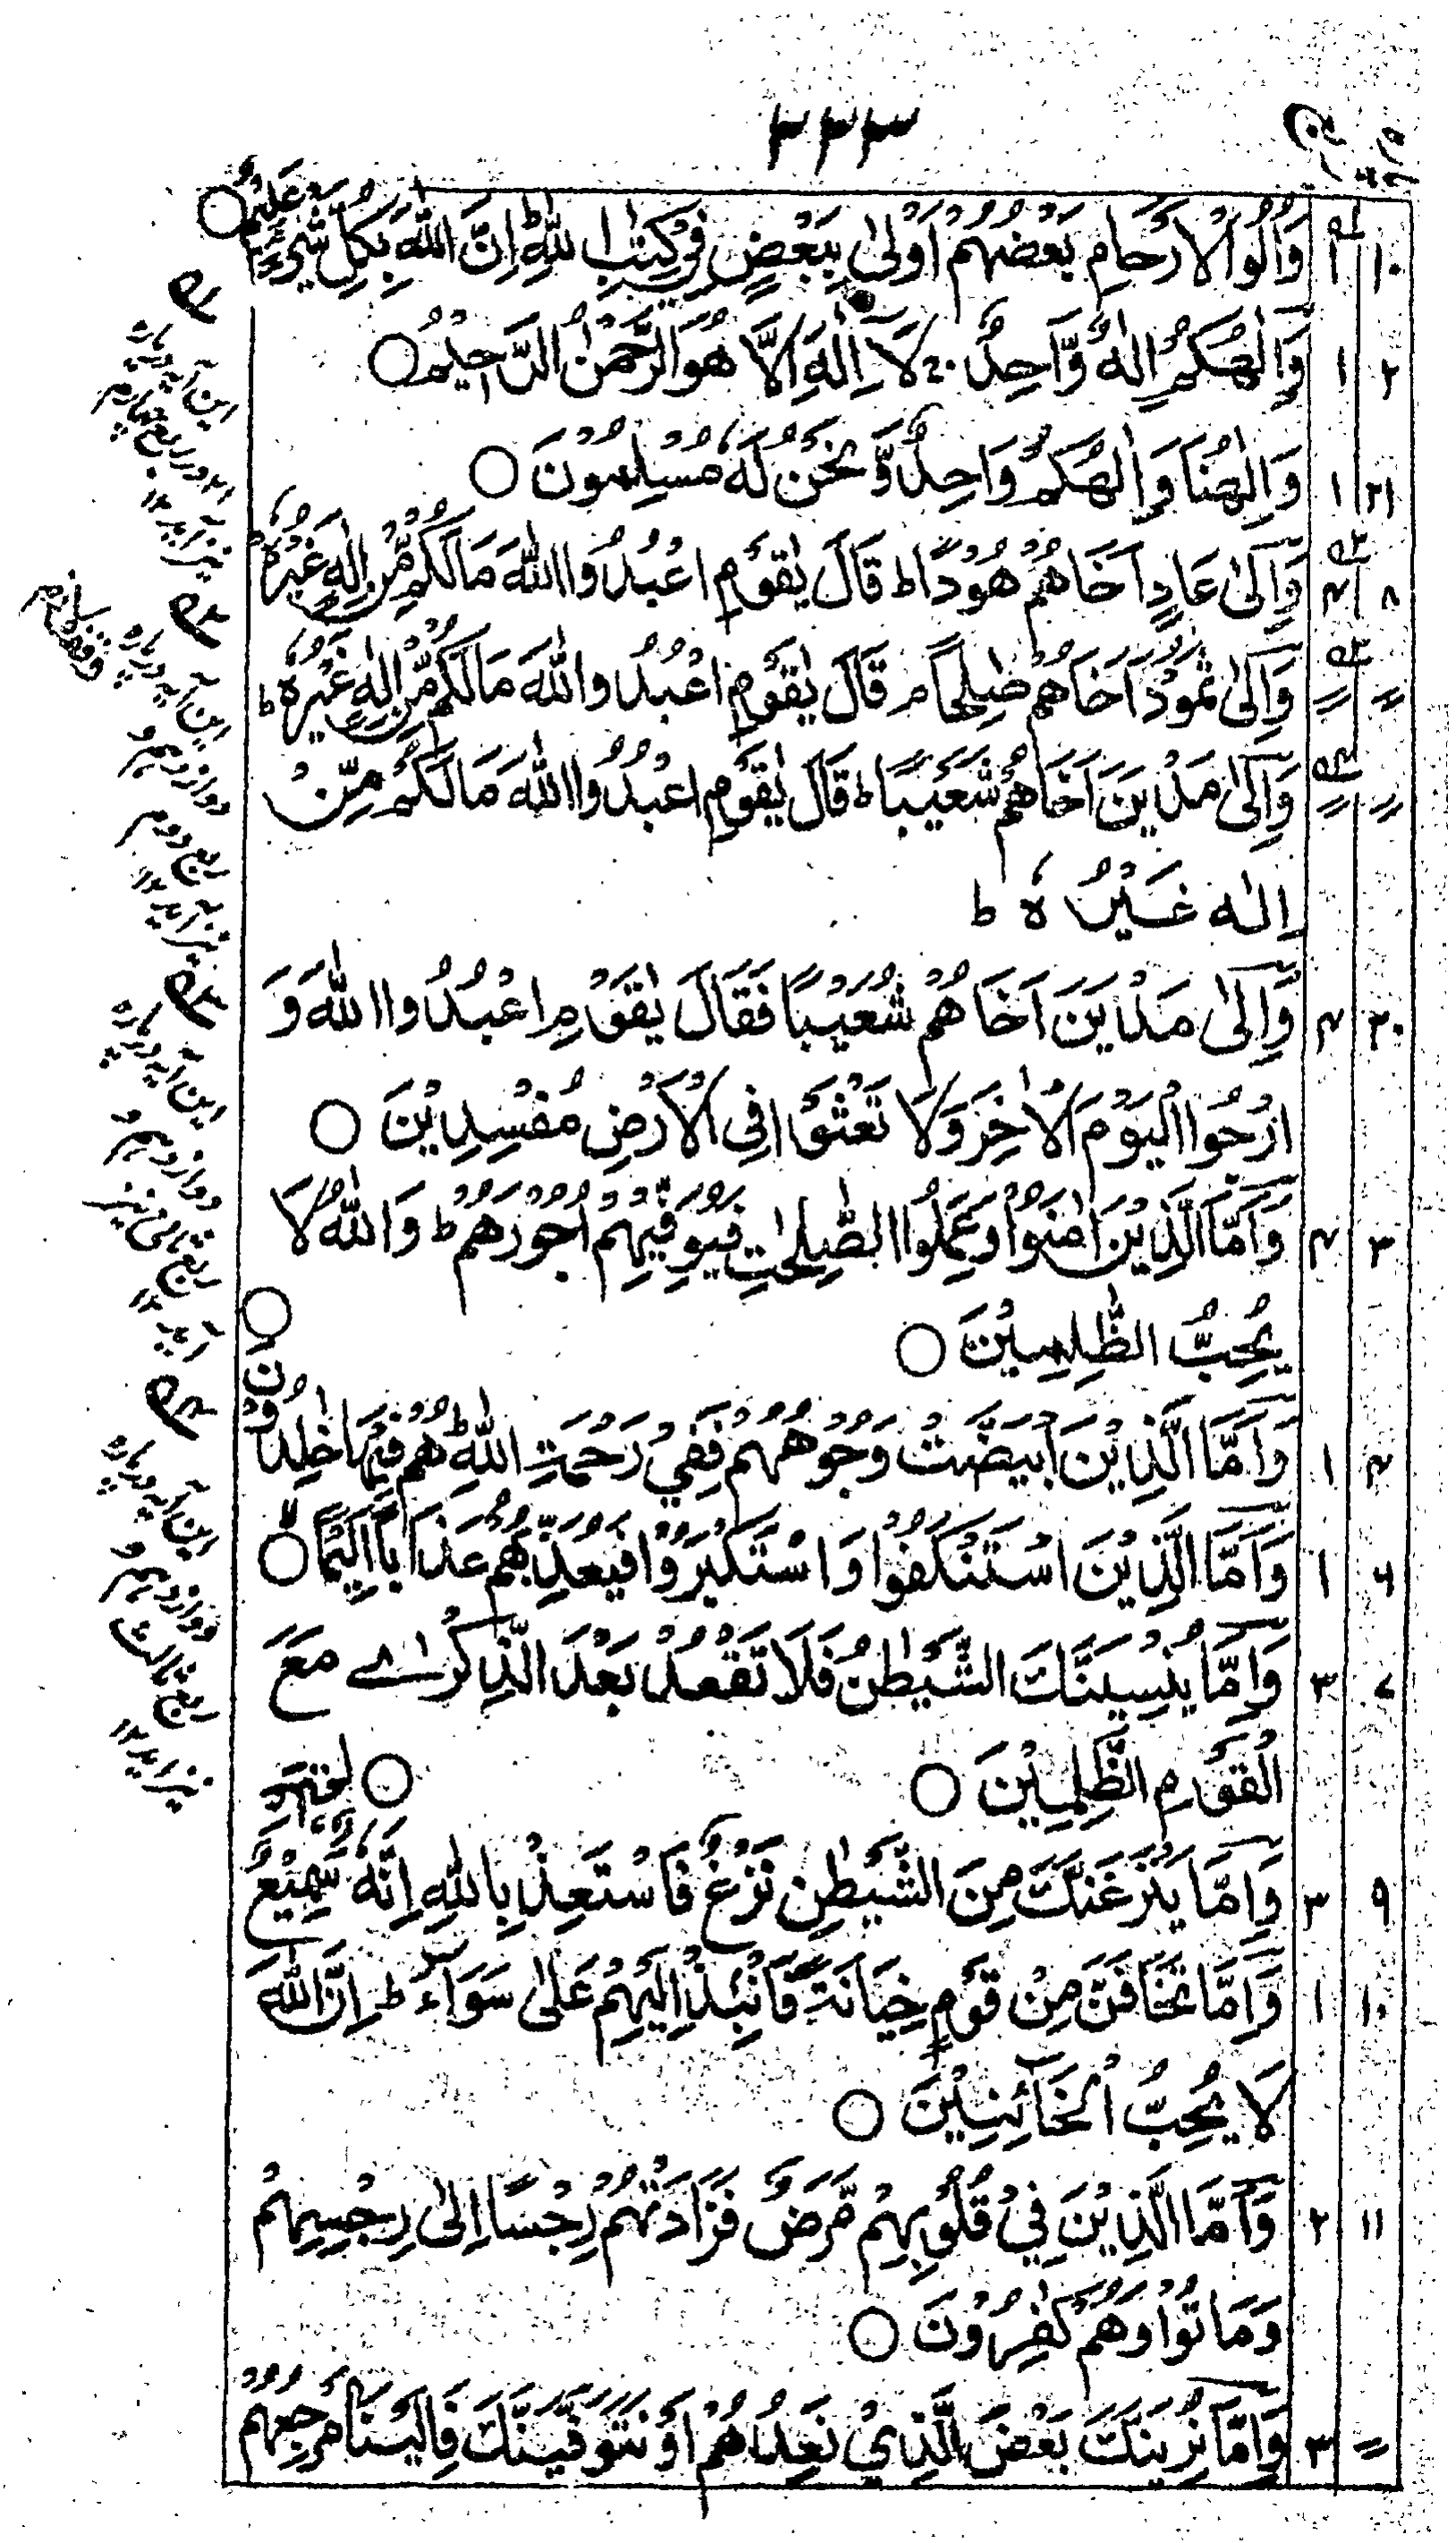 ۳۳۳
۱۰ ۱ وَاُولُوا الْاَرْحَامِ بَعْضُهُمْ اَوْلٰى بِبَعْضٍ فِيْ كِتٰبِ اللّٰهِ ط اِنَّ اللّٰهَ بِكُلِّ شَيْءٍ عَلِيْمٌ ○
۲ ۱ وَاِلٰهُكُمْ اِلٰهٌ وَّاحِدٌ ج لَا اِلٰهَ اِلَّا هُوَ الرَّحْمٰنُ الرَّحِيْمُ ○
۲۱ ۱ وَاِلٰهُنَا وَاِلٰهُكُمْ وَاحِدٌ وَّنَحْنُ لَهٗ مُسْلِمُوْنَ ○
۸ ۴ وَاِلٰى عَادٍ اَخَاهُمْ هُوْدًا ط قَالَ يٰقَوْمِ اعْبُدُوا اللّٰهَ مَا لَكُمْ مِّنْ اِلٰهٍ غَيْرُهٗ
〃 〃 وَاِلٰى ثَمُوْدَ اَخَاهُمْ صٰلِحًا م قَالَ يٰقَوْمِ اعْبُدُوا اللّٰهَ مَا لَكُمْ مِّنْ اِلٰهٍ غَيْرُهٗ ط
〃 〃 وَاِلٰى مَدْيَنَ اَخَاهُمْ شُعَيْبًا ط قَالَ يٰقَوْمِ اعْبُدُوا اللّٰهَ مَا لَكُمْ مِّنْ
اِلٰهٍ غَيْرُهٗ ط
۲۰ ۴ وَاِلٰى مَدْيَنَ اَخَاهُمْ شُعَيْبًا فَقَالَ يٰقَوْمِ اعْبُدُوا اللّٰهَ وَ
ارْجُوا الْيَوْمَ الْاٰخِرَ وَلَا تَعْثَوْا فِي الْاَرْضِ مُفْسِدِيْنَ ○
۳ ۴ وَاَمَّا الَّذِيْنَ اٰمَنُوْا وَعَمِلُوا الصّٰلِحٰتِ فَيُوَفِّيْهِمْ اُجُوْرَهُمْ ط وَاللّٰهُ لَا
يُحِبُّ الظّٰلِمِيْنَ ○
۴ ۱ وَاَمَّا الَّذِيْنَ ابْيَضَّتْ وُجُوْهُهُمْ فَفِيْ رَحْمَتِ اللّٰهِ ط هُمْ فِيْهَا خٰلِدُوْنَ ○
۶ ۱ وَاَمَّا الَّذِيْنَ اسْتَنْكَفُوْا وَاسْتَكْبَرُوْا فَيُعَذِّبُهُمْ عَذَابًا اَلِيْمًا ○
۷ ۳ وَاِمَّا يُنْسِيَنَّكَ الشَّيْطٰنُ فَلَا تَقْعُدْ بَعْدَ الذِّكْرٰے مَعَ
الْقَوْمِ الظّٰلِمِيْنَ ○
۹ ۳ وَاِمَّا يَنْزَغَنَّكَ مِنَ الشَّيْطٰنِ نَزْغٌ فَاسْتَعِذْ بِاللّٰهِ اِنَّهٗ سَمِيْعٌ
۱۰ ۱ وَاِمَّا تَخَافَنَّ مِنْ قَوْمٍ خِيَانَةً فَانْۢبِذْ اِلَيْهِمْ عَلٰى سَوَآءٍ ط اِنَّ اللّٰهَ
لَا يُحِبُّ الْخَآئِنِيْنَ ○
۱۱ ۲ وَاَمَّا الَّذِيْنَ فِيْ قُلُوْبِهِمْ مَّرَضٌ فَزَادَتْهُمْ رِجْسًا اِلٰى رِجْسِهِمْ
وَمَاتُوْا وَهُمْ كٰفِرُوْنَ ○
〃 ۳ وَاِمَّا نُرِيَنَّكَ بَعْضَ الَّذِيْ نَعِدُهُمْ اَوْ نَتَوَفَّيَنَّكَ فَاِلَيْنَا مَرْجِعُهُمْ
این آیه در پاره
نیز آید ۱۲
این آیه در پاره
دوازدهم و
ربع دوم
نیز آید ۱۲
این آیه در پاره
دوازدهم و
این آیه در پاره
دوازدهم و
ربع ثالث
نیز آید ۱۲